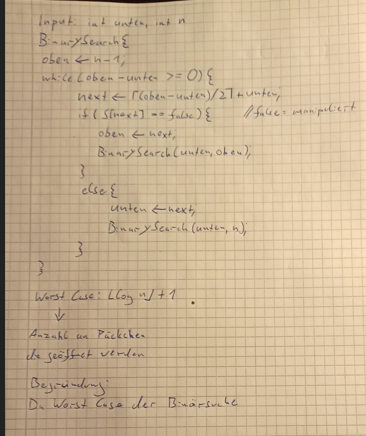 Input: int unten, int n
BinarySearch{
oben ← n-1,
while(oben-unten >= 0){
next ← ⌈(oben-unten)/2⌉+unten,
if(S[next] == false){ //false = manipuliert
oben ← next,
BinarySearch(unten,oben),
}
else{
unten ← next,
BinarySearch(unten,n);
}
}
Worst Case: ⌊log n⌋+1
↓
Anzahl an Päckchen
die geöffnet werden
Begründung:
Da Worst Case der Binärsuche